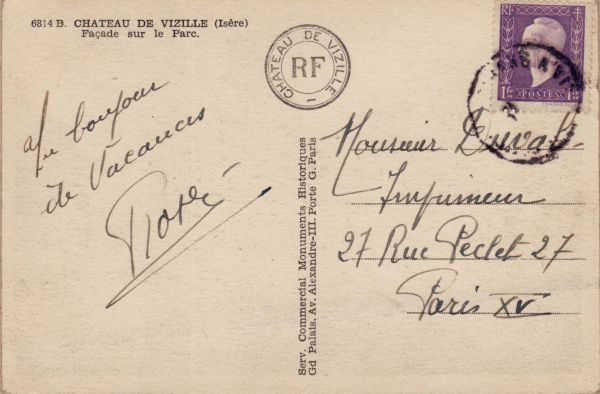 6814 B. CHATEAU DE VIZILLE (Isère)
Façade sur le Parc.
CHATEAU DE VIZILLE
RF
RF
1 fr
POSTES
1 fr
bonjour
de Vacances
Serv. Commercial Monuments Historiques
Gd Palais, Av. Alexandre-III. Porte G. Paris
Monsieur Duval
Imprimeur
27 Rue Peclet 27
Paris XV